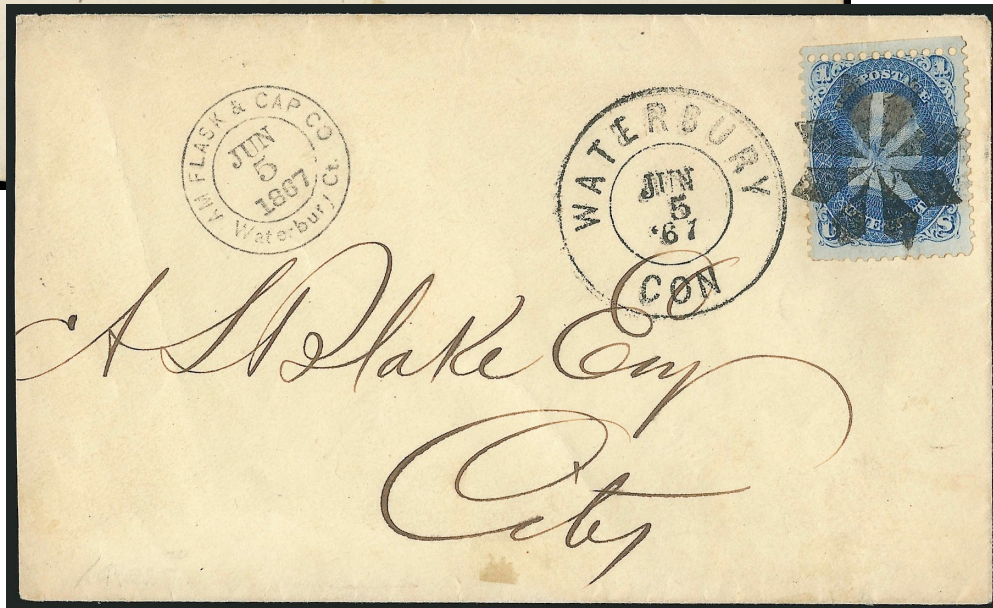 AM FLASK & CAP CO
JUN
5
1867
Waterbury, Ct.
WATERBURY
JUN
5
'67
CON
1 U.S. POSTAGE 1
A S Blake Esq
City